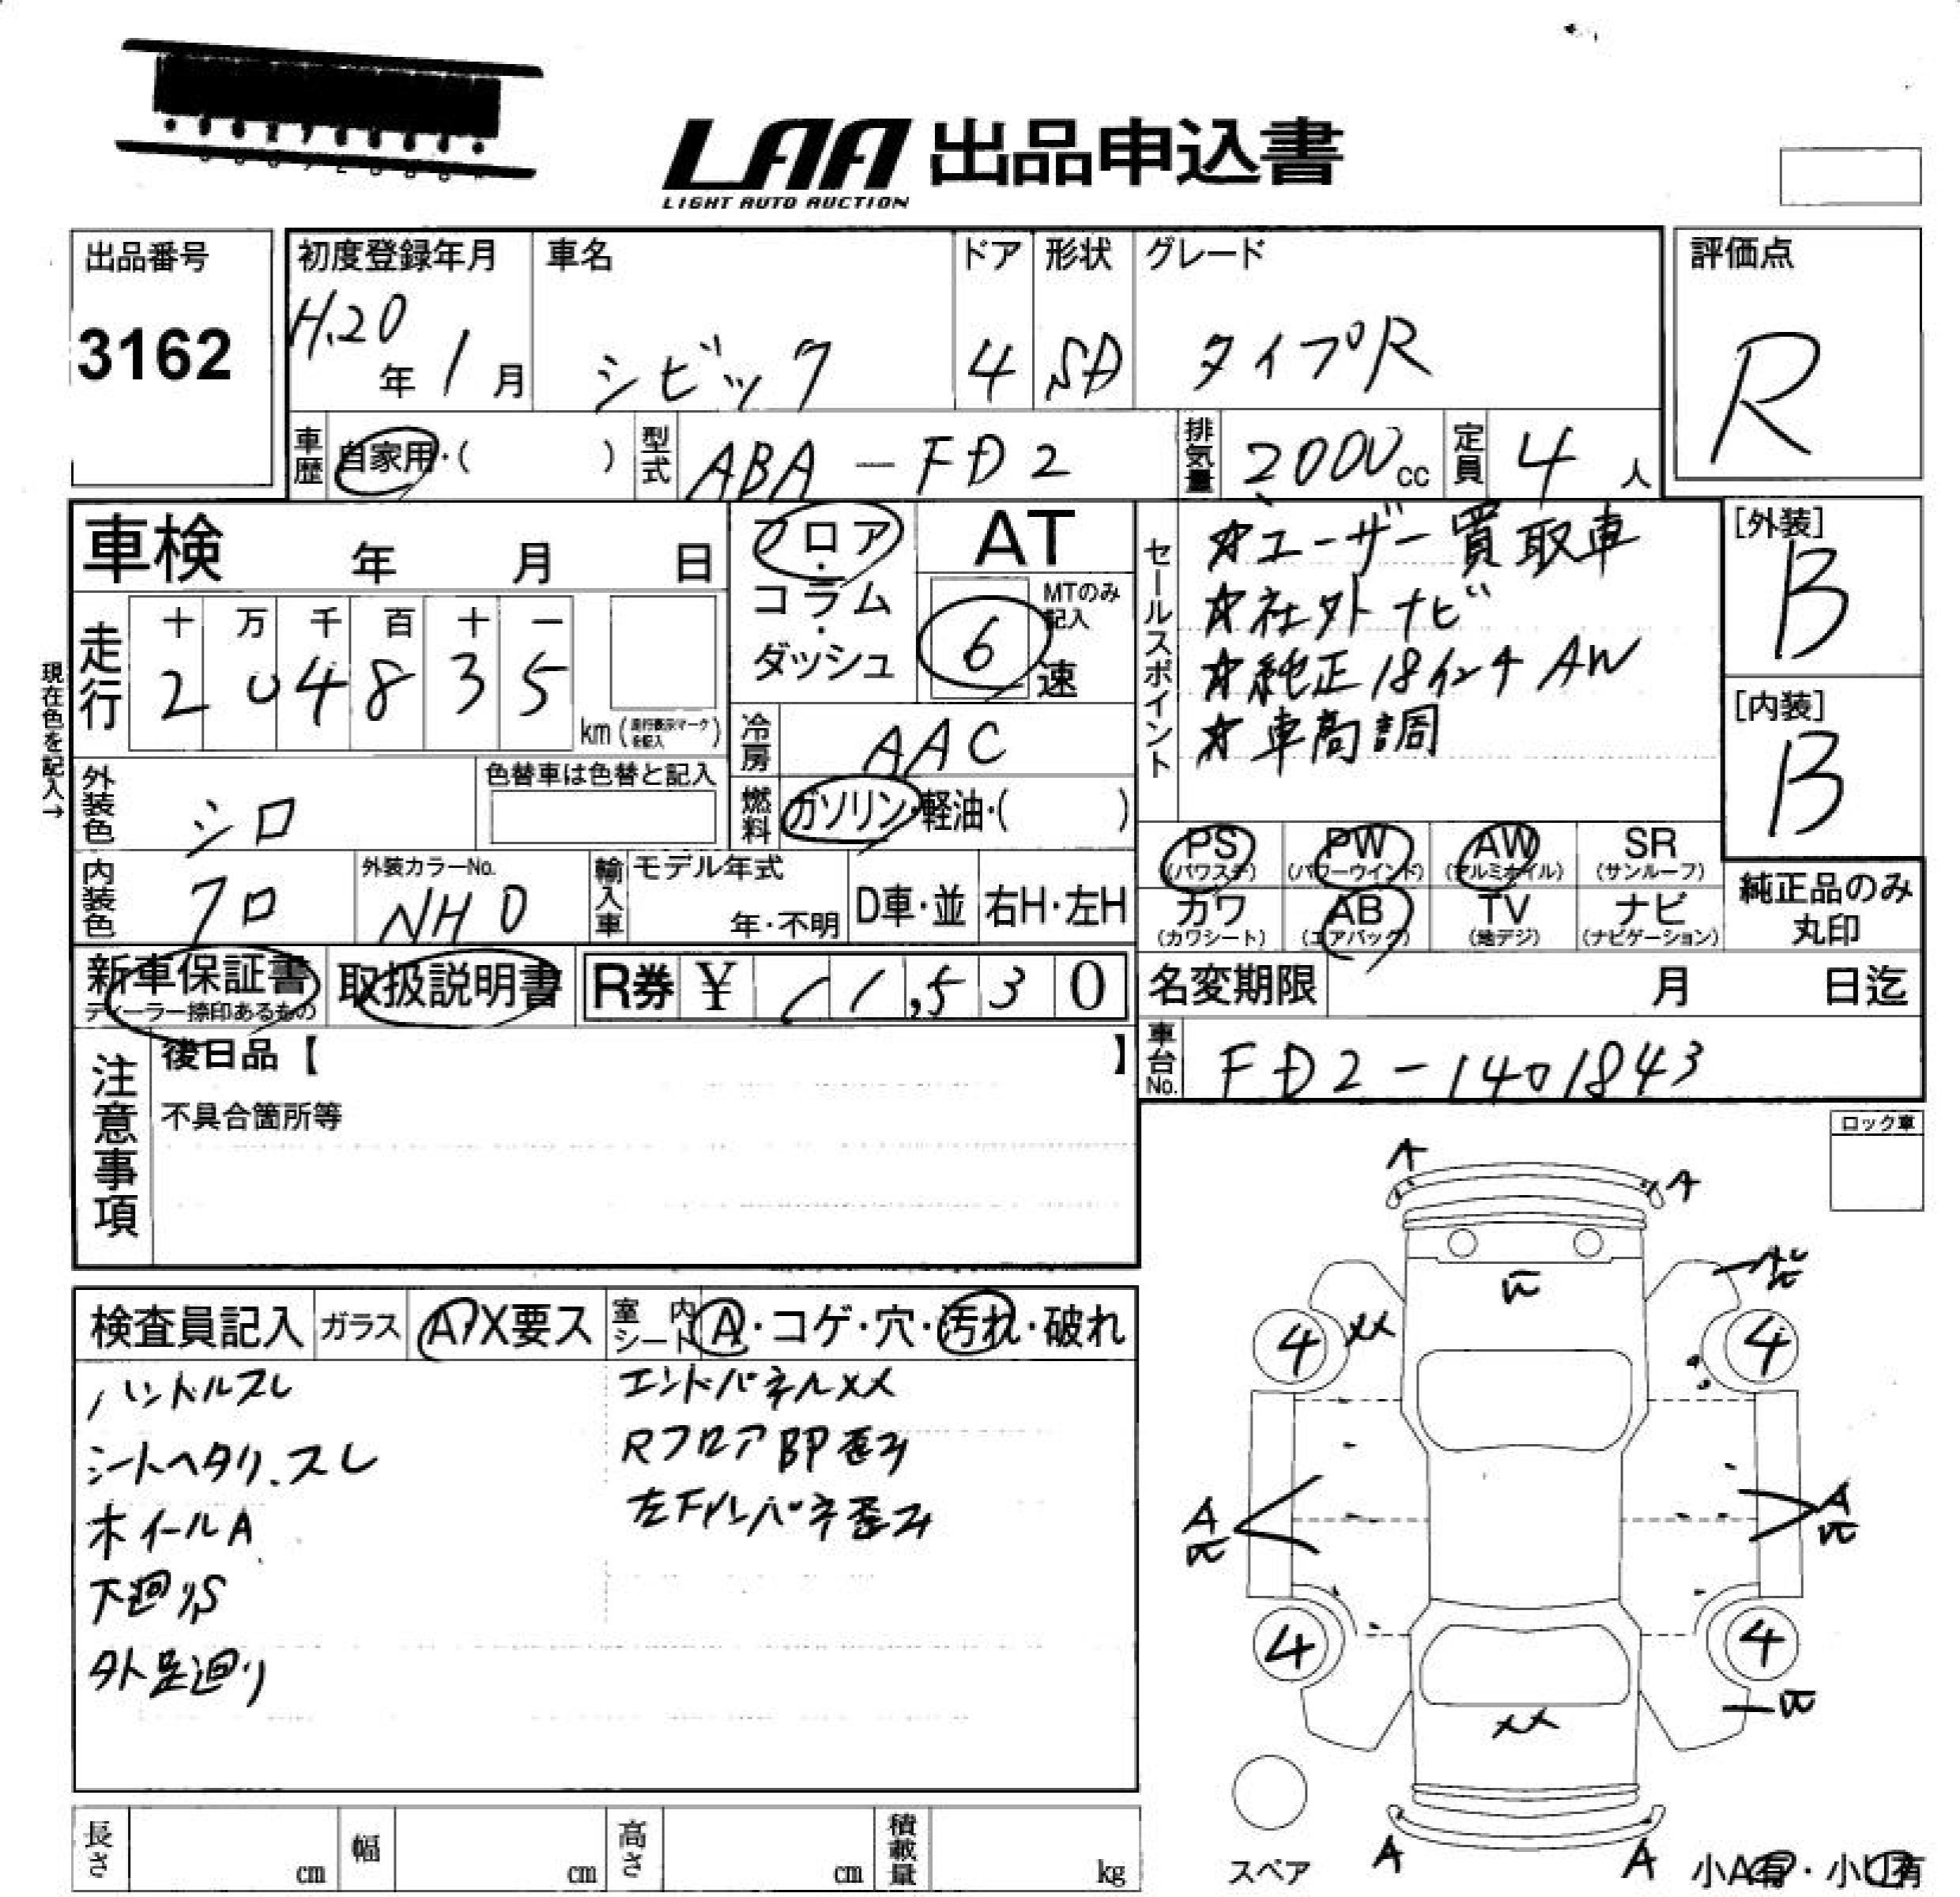 LAA 出品申込書
LIGHT AUTO AUCTION
出品番号
3162
初度登録年月
H.20年 1月
車名
シビック
ドア
4
形状
SD
グレード
タイプR
評価点
R
車歴 自家用・( )
型式 ABA-FD2
排気量 2000cc
定員 4人
車検 年 月 日
フロア・コラム・ダッシュ
AT
MTのみ記入
6速
セールスポイント
☆ユーザー買取車
☆社外ナビ
☆純正18インチAW
☆車高調
[外装]
B
[内装]
B
現在色を記入→
走行
十 万 千 百 十 一
2 0 4 8 3 5
km (走行表示マークを記入)
冷房 AAC
燃料 ガソリン・軽油・( )
外装色 シロ
色替車は色替と記入
内装色 クロ
外装カラーNo.
NH0
輸入車 モデル年式
年・不明
D車・並
右H・左H
PS (パワステ)
PW (パワーウインド)
AW (アルミホイル)
SR (サンルーフ)
カワ (カワシート)
AB (エアバッグ)
TV (地デジ)
ナビ (ナビゲーション)
純正品のみ丸印
新車保証書
ディーラー捺印あるもの
取扱説明書
R券 ¥ 11,530
名変期限 月 日迄
車台No. FD2-1401843
注意事項
後日品【 】
不具合箇所等
ロック車
検査員記入
ガラス
A・X要ス
室内シート
A・コゲ・穴・汚れ・破れ
ハンドルスレ
シートヘタリ、スレ
ホイールA
下廻りS
外足廻り
エンドパネルXX
Rフロア部歪み
左Fインパネ歪み
A
A
XX
4
4
A
A
4
4
XX
A
A
スペア
小A有・小U有
長さ cm
幅 cm
高さ cm
積載量 kg